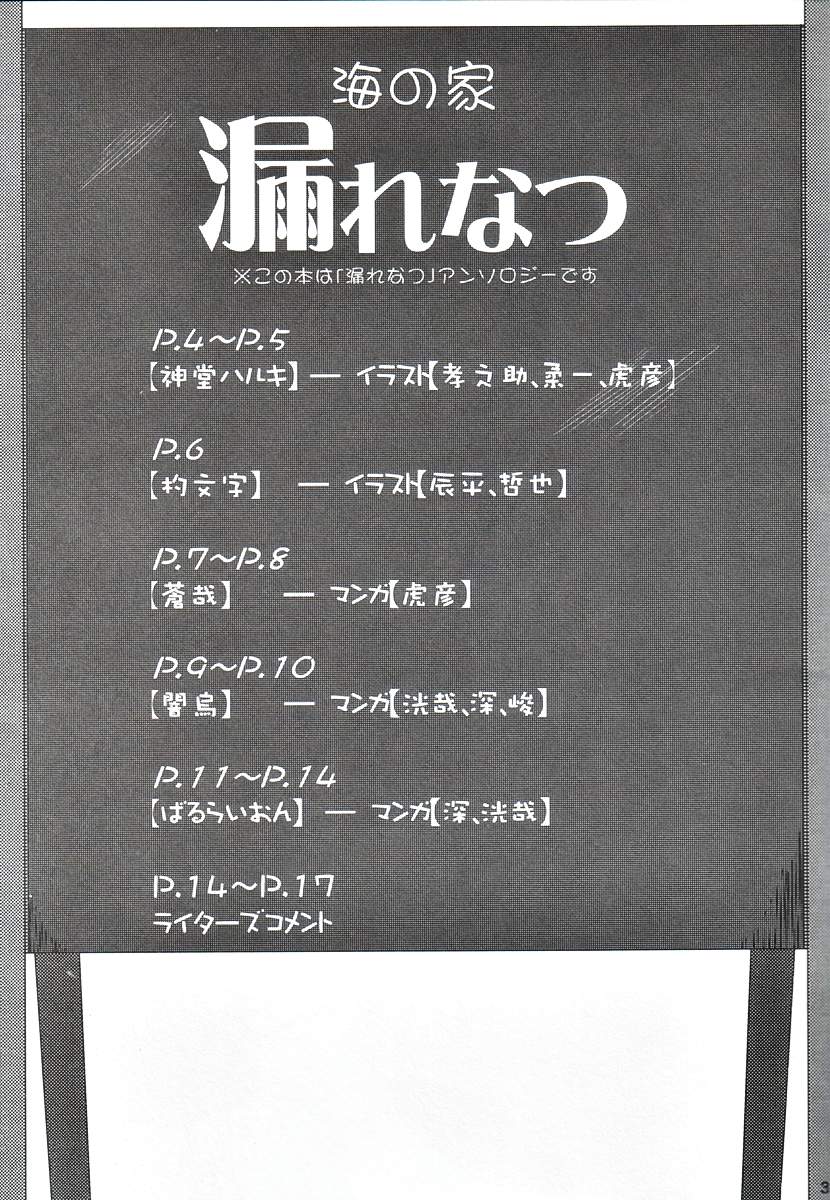 海の家
漏れなつ
※この本は「漏れなつ」アンソロジーです
P.4～P.5
【神堂ハルキ】― イラスト【孝之助、柔一、虎彦】
P.6
【杓文字】 ― イラスト【辰平、哲也】
P.7～P.8
【蒼哉】 ― マンガ【虎彦】
P.9～P.10
【闇烏】 ― マンガ【洸哉、深、峻】
P.11～P.14
【ばるらいおん】 ― マンガ【深、洸哉】
P.14～P.17
ライターズコメント
3